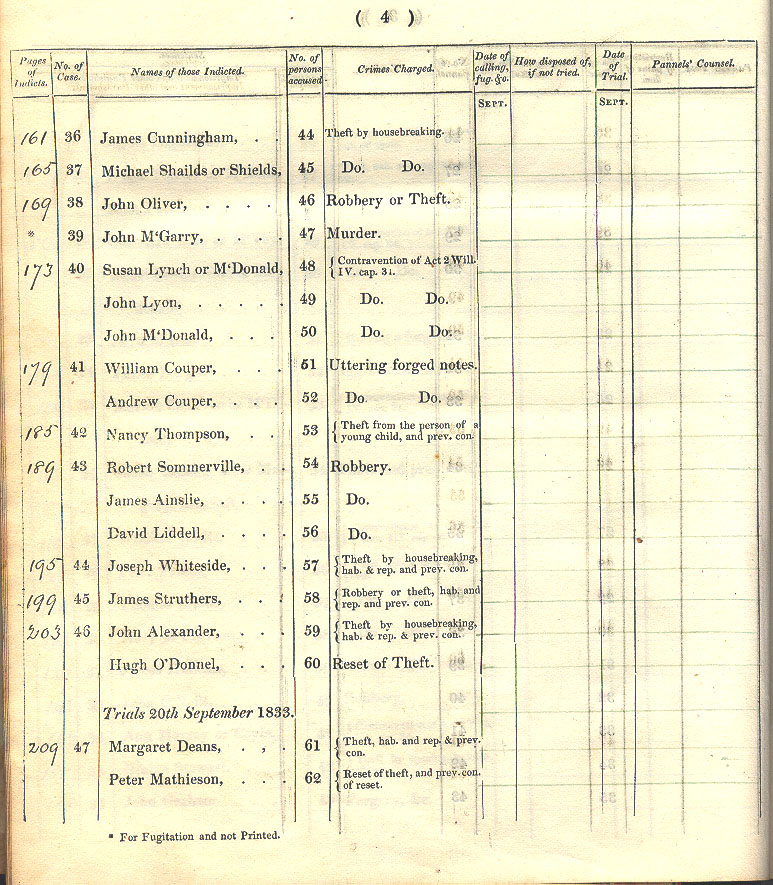 ( 4 )
Pages of Indicts. No. of Case. Names of those Indicted. No. of persons accused. Crimes Charged. Date of calling, fug. &c. How disposed of, if not tried. Date of Trial. Pannels' Counsel.
SEPT. SEPT.
161 36 James Cunningham, . . 44 Theft by housebreaking.
165 37 Michael Shailds or Shields, 45 Do. Do.
169 38 John Oliver, . . . . 46 Robbery or Theft.
* 39 John M'Garry, . . . . 47 Murder.
173 40 Susan Lynch or M'Donald, 48 { Contravention of Act 2 Will. IV. cap. 34.
John Lyon, . . . . . 49 Do. Do.
John M'Donald, . . . 50 Do. Do.
179 41 William Couper, . . . 51 Uttering forged notes.
Andrew Couper, . . . 52 Do. Do.
185 42 Nancy Thompson, . . 53 { Theft from the person of a young child, and prev. con.
189 43 Robert Sommerville, . . 54 Robbery.
James Ainslie, . . . . 55 Do.
David Liddell, . . . . 56 Do.
195 44 Joseph Whiteside, . . . 57 { Theft by housebreaking, hab. & rep. and prev. con.
199 45 James Struthers, . . . 58 { Robbery or theft, hab. and rep. and prev. con.
203 46 John Alexander, . . . 59 { Theft by housebreaking, hab. & rep. & prev. con.
Hugh O'Donnel, . . . 60 Reset of Theft.
Trials 20th September 1833.
209 47 Margaret Deans, . , . 61 { Theft, hab. and rep. & prev. con.
Peter Mathieson, . . . 62 { Reset of theft, and prev. con. of reset.
* For Fugitation and not Printed.